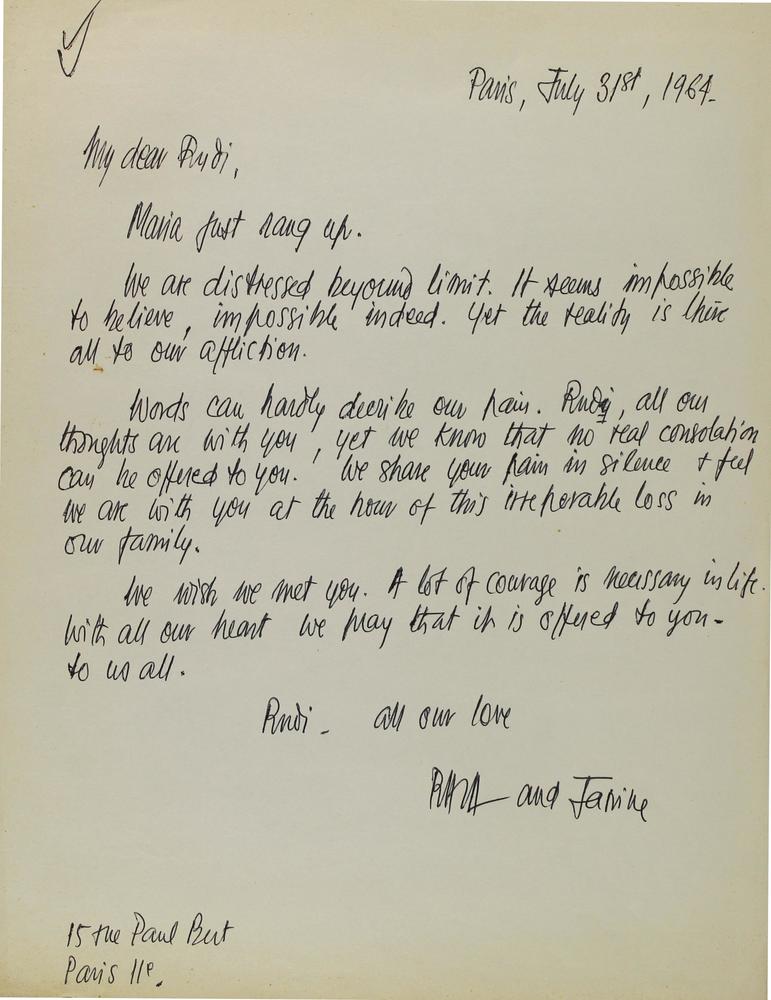 Paris, July 31st, 1964.
My dear Rudi,
Maria just rang up.
We are distressed beyound limit. It seems impossible
to believe, impossible indeed. Yet the reality is there
all to our affliction.
Words can hardly decribe our pain. Rudi, all our
thoughts are with you, yet we know that no real consolation
can be offered to you. We share your pain in silence + feel
we are with you at the hour of this irreparable loss in
our family.
We wish we met you. A lot of courage is necessary in life.
With all our heart we pray that it is offered to you -
to us all.
Rudi - all our love
and Janine
15 rue Paul Bert
Paris 11e.